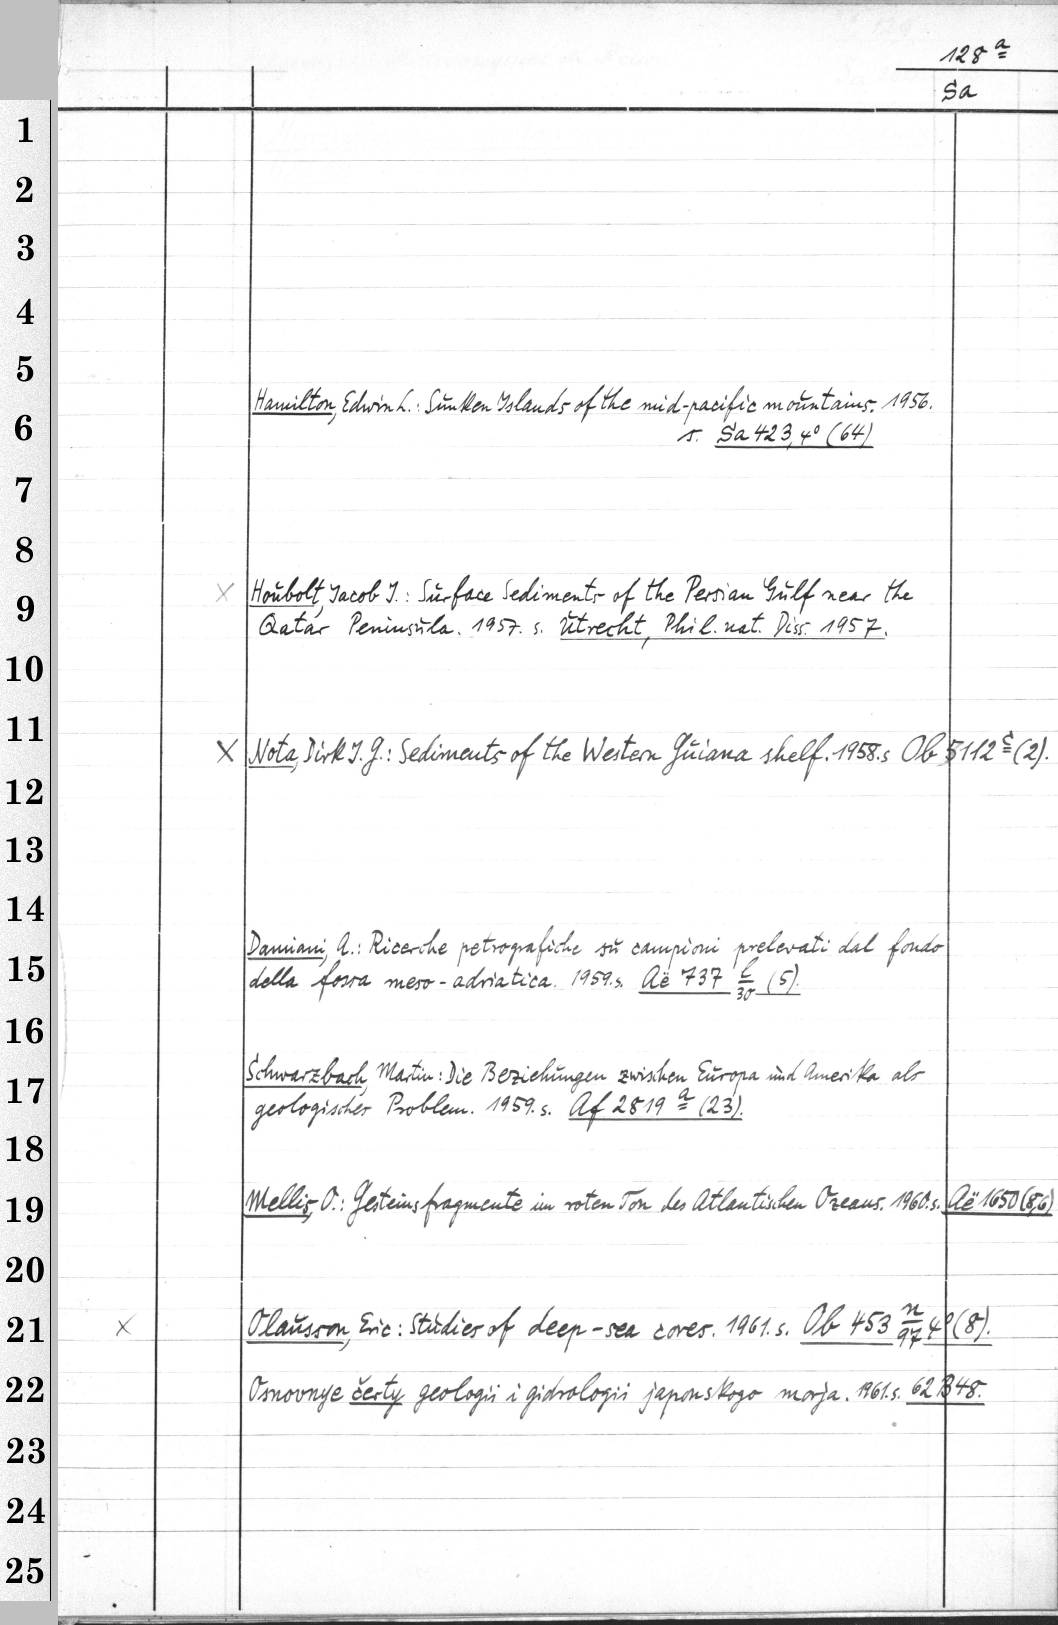 128 a
Sa
1
2
3
4
5
Hamilton, Edwin L.: Sunken Islands of the mid-pacific mountains. 1956.
6
s. Sa 423, 4° (64)
7
8
× Houbolt, Jacob J.: Surface Sediments of the Persian Gulf near the
9
Qatar Peninsula. 1957. s. Utrecht, Phil. nat. Diss. 1957.
10
11
× Nota, Dirk J. G.: Sediments of the Western Guiana shelf. 1958. s Ob 5112 c (2).
12
13
14
Damiani, A.: Ricerche petrografiche su campioni prelevati dal fondo
15
della fossa meso-adriatica. 1959. s. Aë 737 l/30 (5).
16
Schwarzbach, Martin: Die Beziehungen zwischen Europa und Amerika als
17
geologisches Problem. 1959. s. Af 2819 a (23).
18
19 Mellis, O.: Gesteinsfragmente im roten Ton des Atlantischen Ozeans. 1960. s. Aë 1650 (8,6)
20
21 × Olausson, Eric: Studies of deep-sea cores. 1961. s. Ob 453 n/97 4° (8).
22 Osnovnye čerty geologii i gidrologii japonskogo morja. 1961. s. 62 B 48.
23
24
25